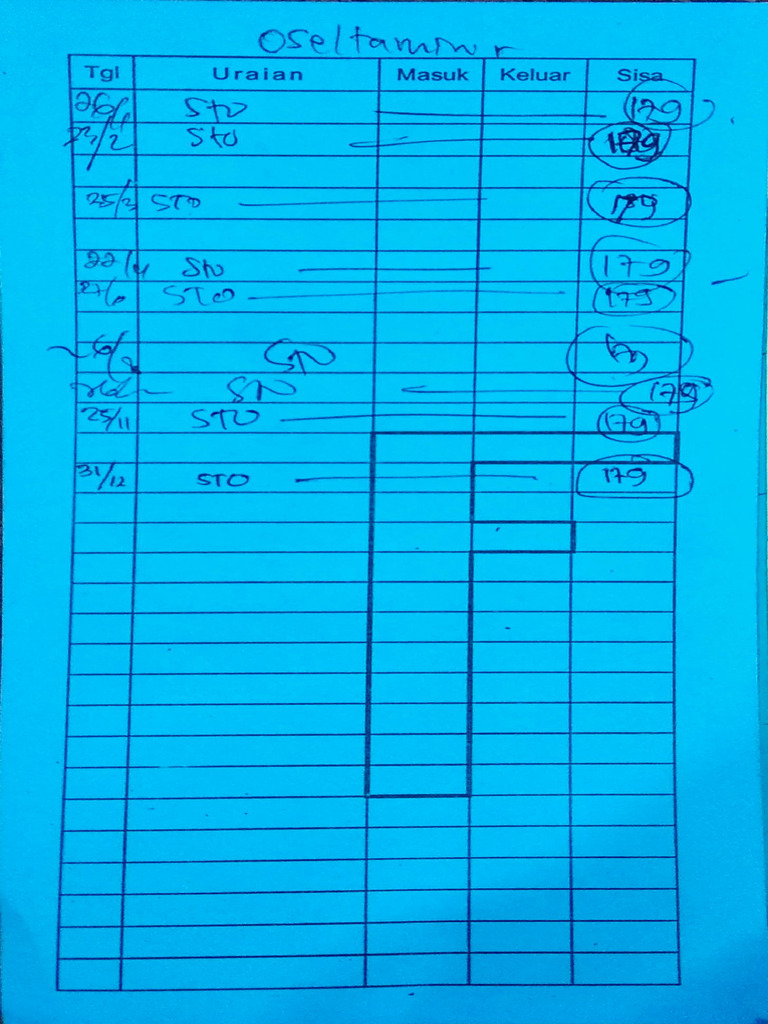 Oseltamiwr
Tgl Uraian Masuk Keluar Sisa
26/ STO 179
23/2 STO
25/3 STO 179
22/4 STO 179
27/6 STO 179
STO
STO 179
25/11 STO 179
31/12 STO 179